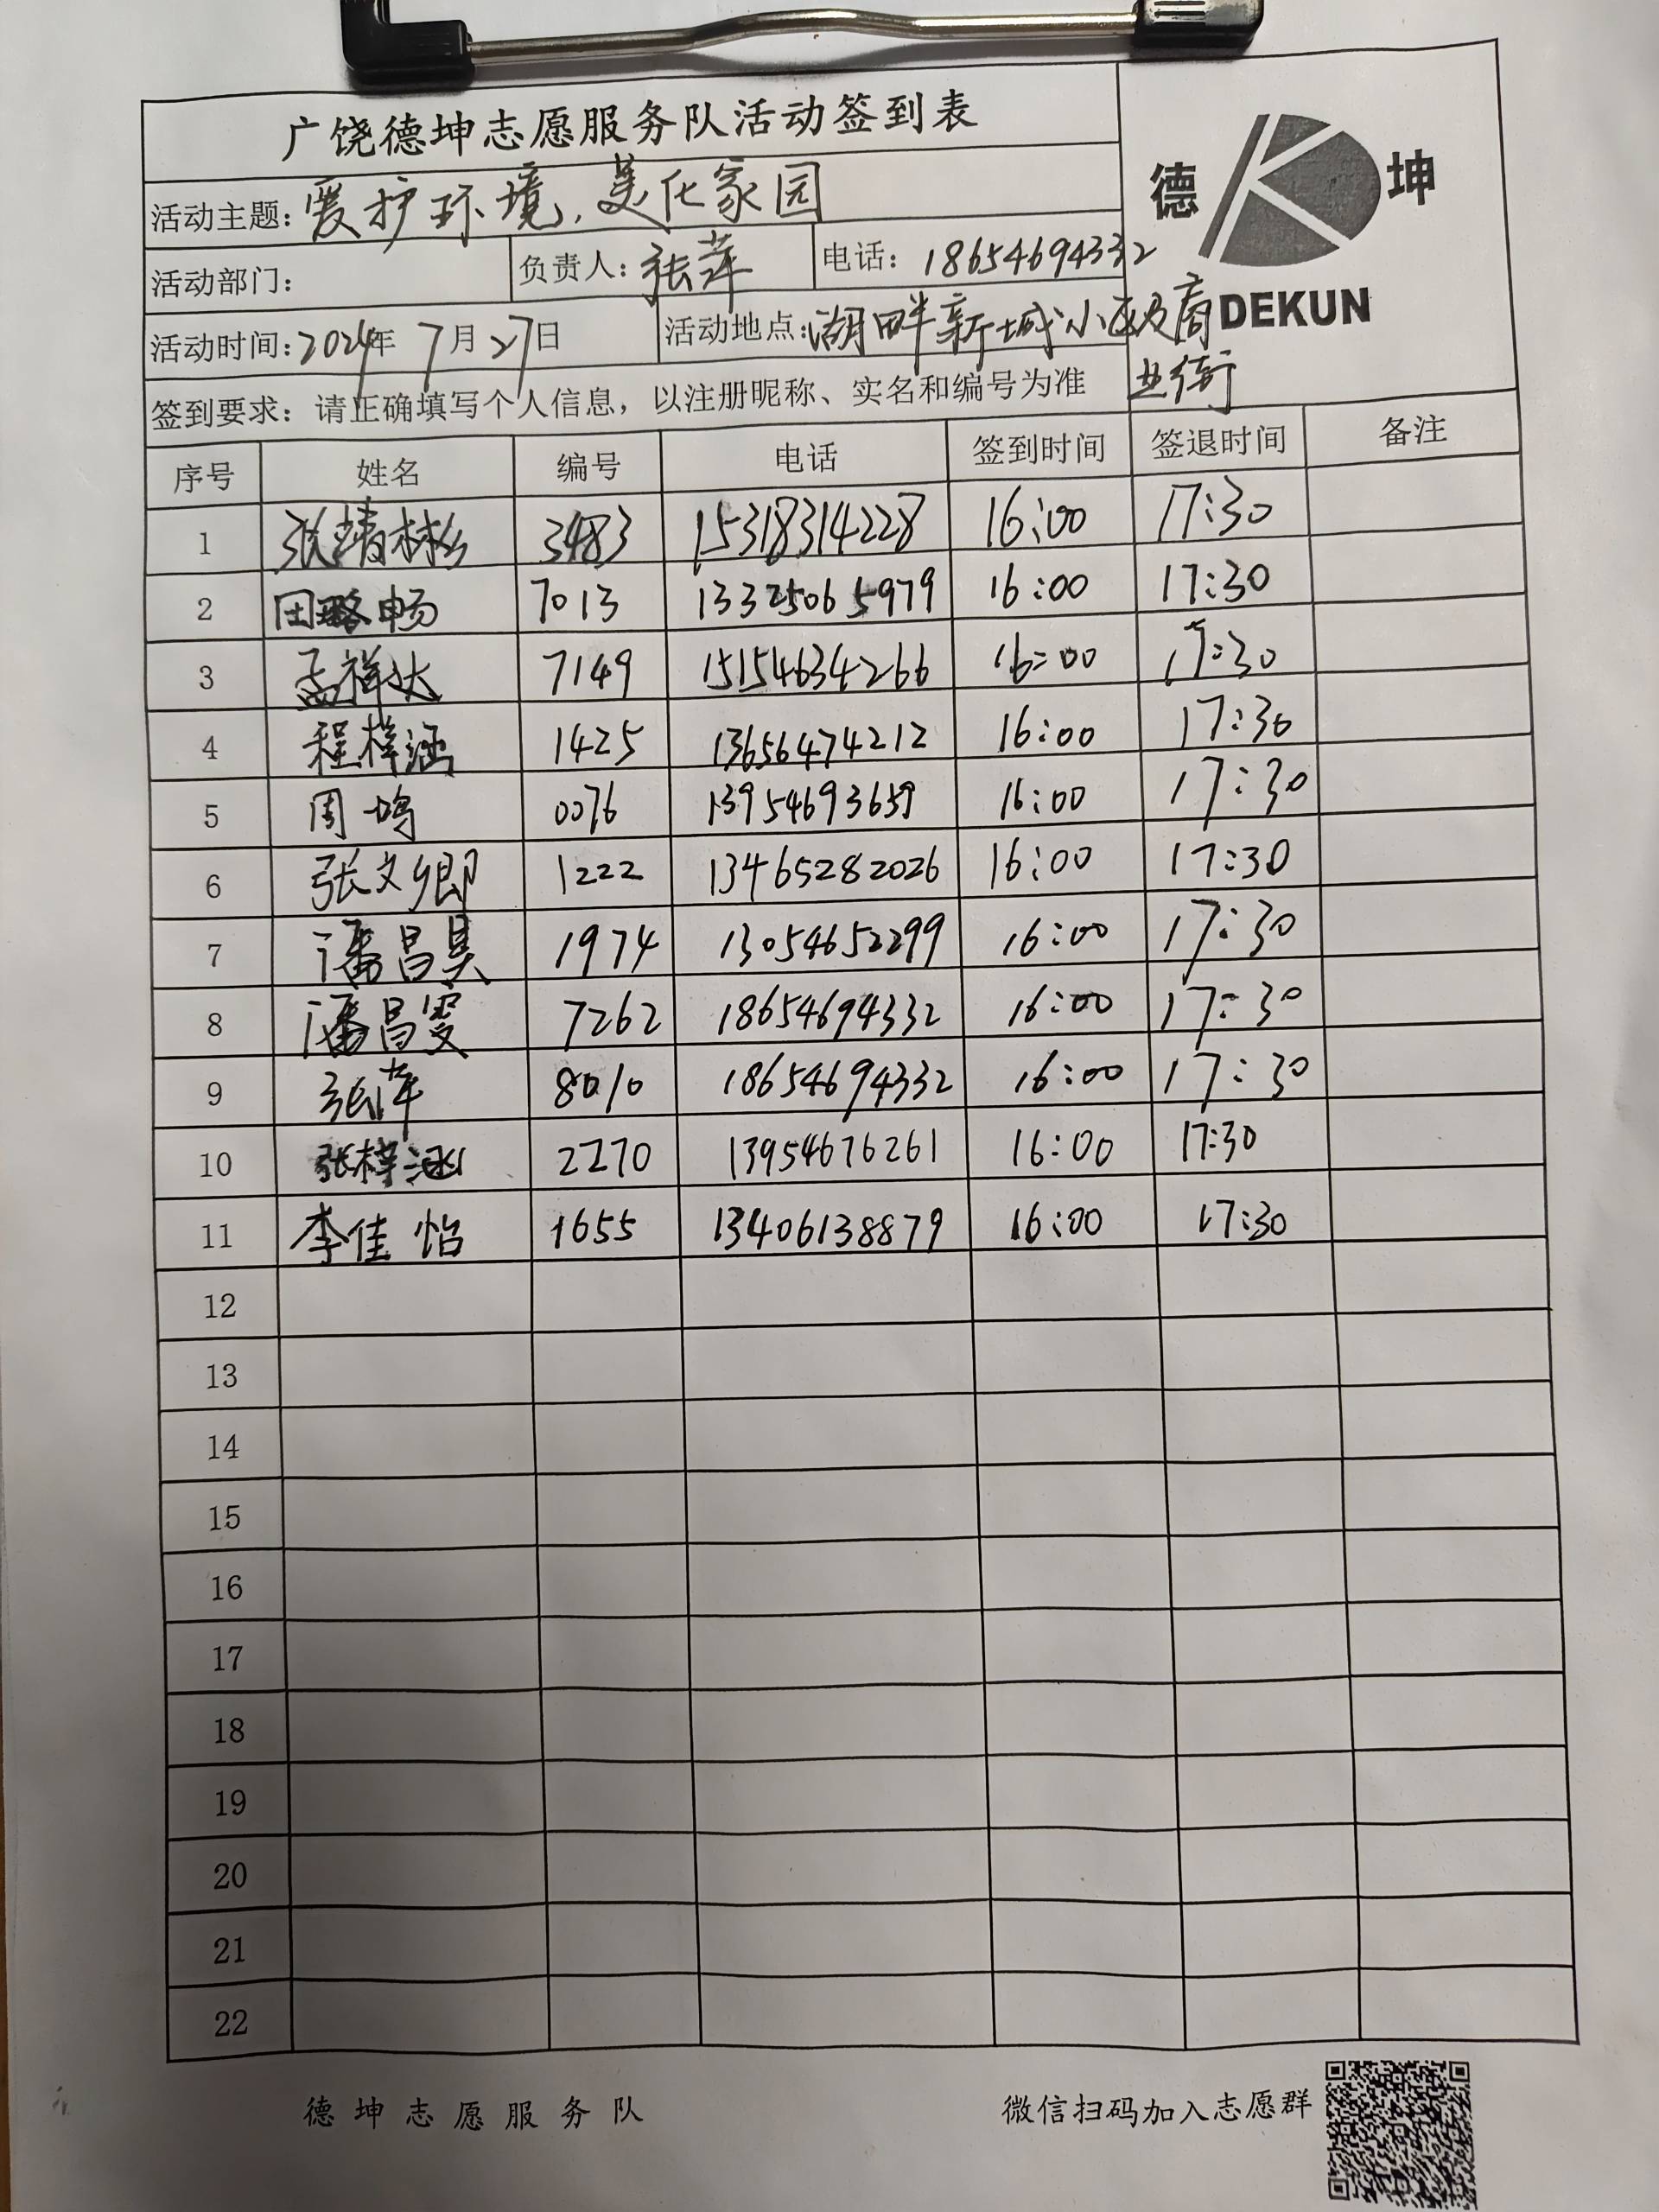 广饶德坤志愿服务队活动签到表
德 坤
DEKUN
活动主题：爱护环境，美化家园
活动部门： 负责人：张萍 电话：18654694332
活动时间：2024年 7月27日 活动地点：湖畔新城小区及商
业街
签到要求：请正确填写个人信息，以注册昵称、实名和编号为准
序号 姓名 编号 电话 签到时间 签退时间 备注
1 张靖 3483 15318314228 16:00 17:30
2 田 畅 7013 13325065979 16:00 17:30
3 孟祥达 7149 15154634266 16:00 17:30
4 程梓涵 1425 13656474212 16:00 17:30
5 周 0076 13954693659 16:00 17:30
6 张文卿 1222 13465282026 16:00 17:30
7 潘昌昊 1974 13054652299 16:00 17:30
8 潘昌雯 7262 18654694332 16:00 17:30
9 张萍 8010 18654694332 16:00 17:30
10 张梓涵 2270 13954676261 16:00 17:30
11 李佳怡 1655 13406138879 16:00 17:30
12
13
14
15
16
17
18
19
20
21
22
德坤志愿服务队 微信扫码加入志愿群